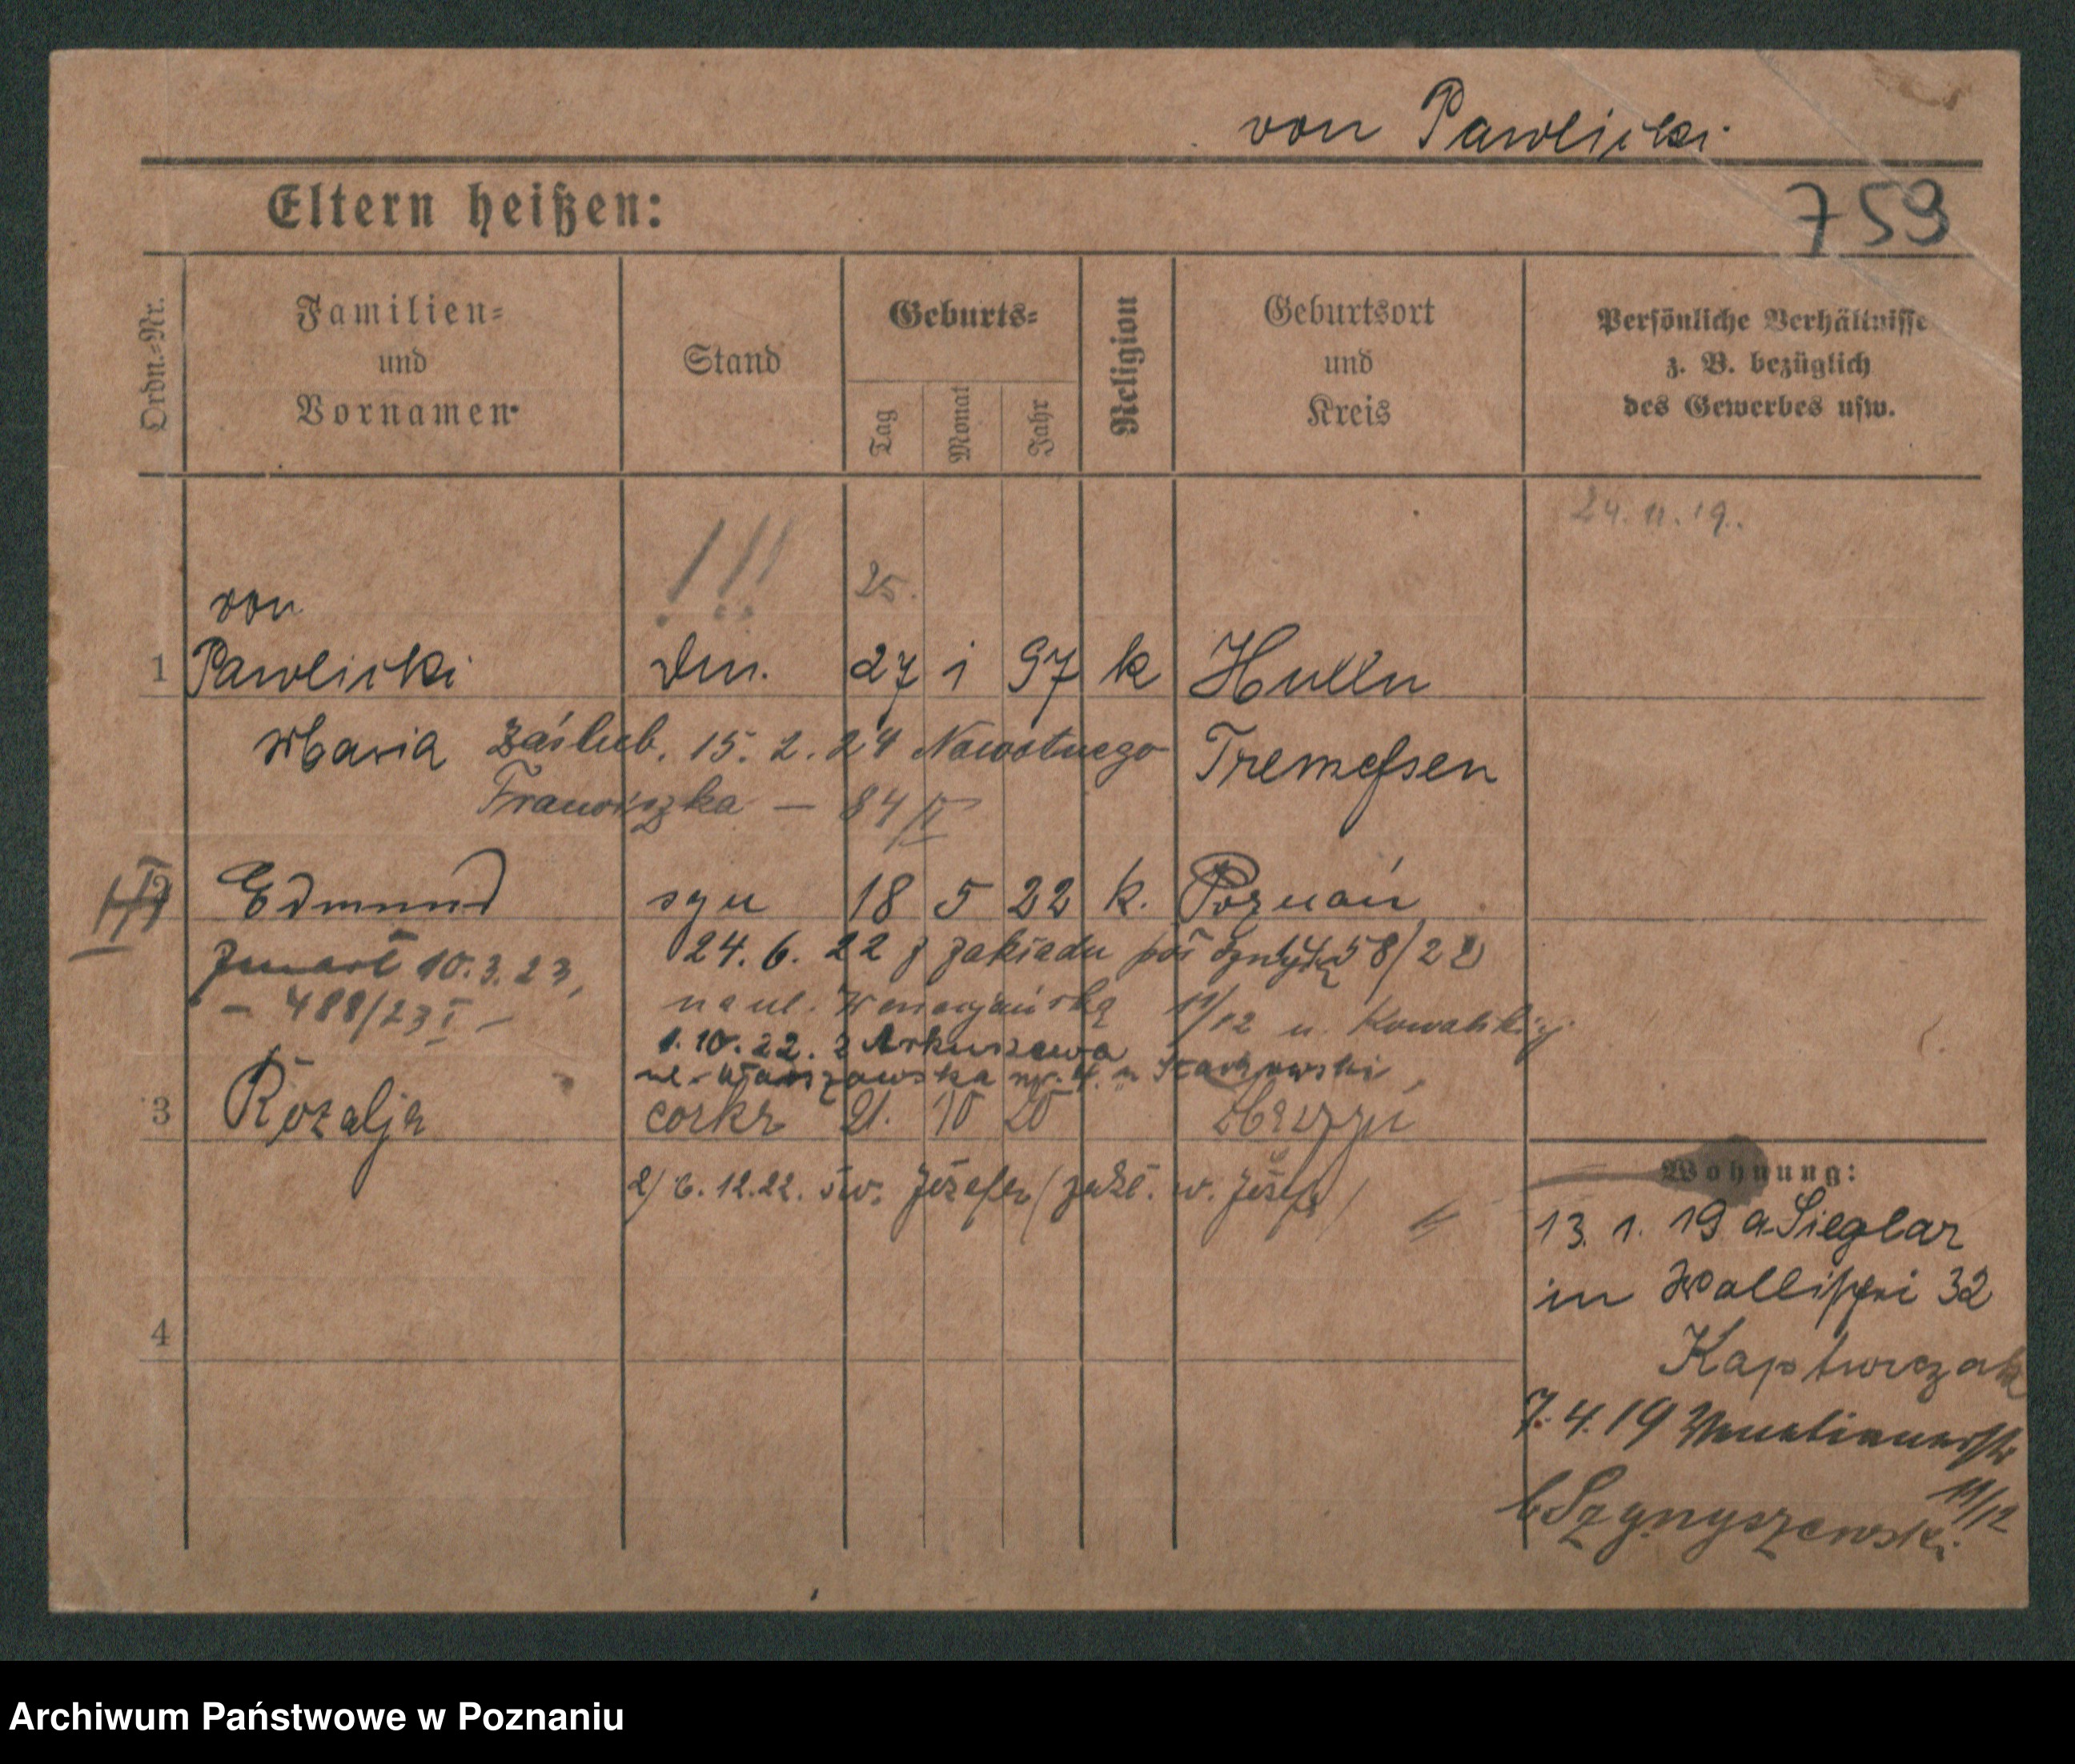 von Pawlicki
Eltern heißen:
759
Ordn.-Nr.
Familien- und Vornamen
Stand
Geburts-
Tag
Monat
Jahr
Religion
Geburtsort und Kreis
Persönliche Verhältnisse z. B. bezüglich des Gewerbes usw.
24. 11. 19.
!!!
25.
von
1 Pawlicki 27 1 97 k
Maria Zaślub. 15. 2. 24 Nowotnego Tremessen
Franciszka — 84/II
Edmund syn 18 5 22 k. Poznań
zmarł 10.3.23, 24. 6. 22 z zakładu 58/22
- 488/23 I - na ul. 11/12 u. Kowalskiej
1. 10. 22. z Arkuszewa
ul. Warszawska nr. 4. u
3 Rozalja corka 21. 10 20
2/ 6. 12. 22. św. Józefa (zakł. w. Józefa)
Wohnung:
13. 1. 19 a Sieglar
in Wallischei 32
Kapturczak
4
7. 4. 19
11/12
b Szynyszewski